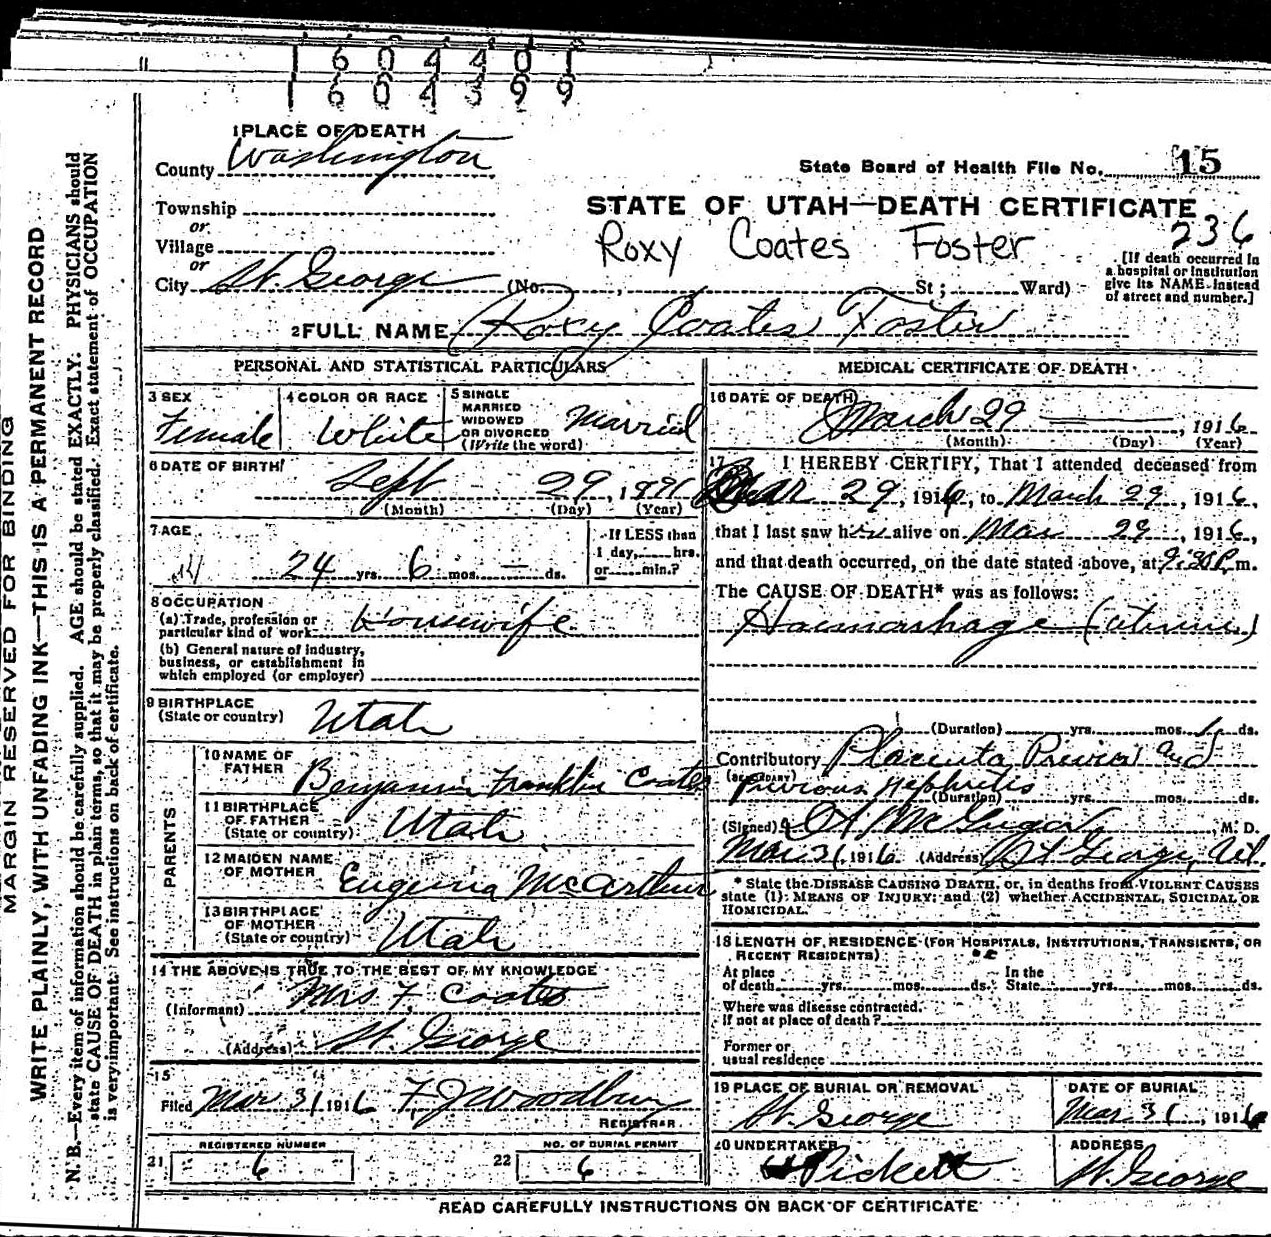 1604401
1604399
MARGIN RESERVED FOR BINDING
WRITE PLAINLY, WITH UNFADING INK—THIS IS A PERMANENT RECORD
N. B.—Every item of information should be carefully supplied. AGE should be stated EXACTLY. PHYSICIANS should
state CAUSE OF DEATH in plain terms, so that it may be properly classified. Exact statement of OCCUPATION
is very important. See instructions on back of certificate.
1 PLACE OF DEATH
County Washington
State Board of Health File No. 15
Township
or
Village
or
City St. George
STATE OF UTAH—DEATH CERTIFICATE
236
Roxy Coates Foster
(No. , St; Ward)
[If death occurred in
a hospital or institution
give its NAME instead
of street and number.]
2 FULL NAME Roxy Coates Foster
PERSONAL AND STATISTICAL PARTICULARS
3 SEX
Female
4 COLOR OR RACE
White
5 SINGLE
MARRIED
WIDOWED
OR DIVORCED
(Write the word)
Married
6 DATE OF BIRTH
Sept 29, 1891
(Month) (Day) (Year)
7 AGE
24 yrs. 6 mos. — ds.
If LESS than
1 day, hrs.
or min.?
8 OCCUPATION
(a) Trade, profession or
particular kind of work Housewife
(b) General nature of industry,
business, or establishment in
which employed (or employer)
9 BIRTHPLACE
(State or country) Utah
PARENTS
10 NAME OF
FATHER Benjamin Franklin Coates
11 BIRTHPLACE
OF FATHER
(State or country) Utah
12 MAIDEN NAME
OF MOTHER Eugenia McArthur
13 BIRTHPLACE
OF MOTHER
(State or country) Utah
14 THE ABOVE IS TRUE TO THE BEST OF MY KNOWLEDGE
(Informant) Mrs F. Coates
(Address) St. George
15
Filed Mar 31 1916 F J Woodbury
REGISTRAR
REGISTERED NUMBER
21 6
NO. OF BURIAL PERMIT
22 6
MEDICAL CERTIFICATE OF DEATH
16 DATE OF DEATH
March 29 , 1916
(Month) (Day) (Year)
17 I HEREBY CERTIFY, That I attended deceased from
Mar 29, 1916, to March 29, 1916,
that I last saw her alive on Mar 29, 1916,
and that death occurred, on the date stated above, at 9:30 P. m.
The CAUSE OF DEATH* was as follows:
Haemorrhage (uterine)
(Duration) yrs. mos. 1 ds.
Contributory Placenta Previa and
(SECONDARY) Previous Nephritis
(Duration) yrs. mos. ds.
(Signed) McGregor, M. D.
Mar 31 1916 (Address) St George, Ut.
* State the DISEASE CAUSING DEATH, or, in deaths from VIOLENT CAUSES
state (1) MEANS OF INJURY; and (2) whether ACCIDENTAL, SUICIDAL OR
HOMICIDAL.
18 LENGTH OF RESIDENCE (FOR HOSPITALS, INSTITUTIONS, TRANSIENTS, OR
RECENT RESIDENTS)
At place
of death yrs. mos. ds.
In the
State yrs. mos. ds.
Where was disease contracted.
If not at place of death?
Former or
usual residence
19 PLACE OF BURIAL OR REMOVAL
St. George
DATE OF BURIAL
Mar 31, 1916
20 UNDERTAKER
Pickett
ADDRESS
St. George
READ CAREFULLY INSTRUCTIONS ON BACK OF CERTIFICATE